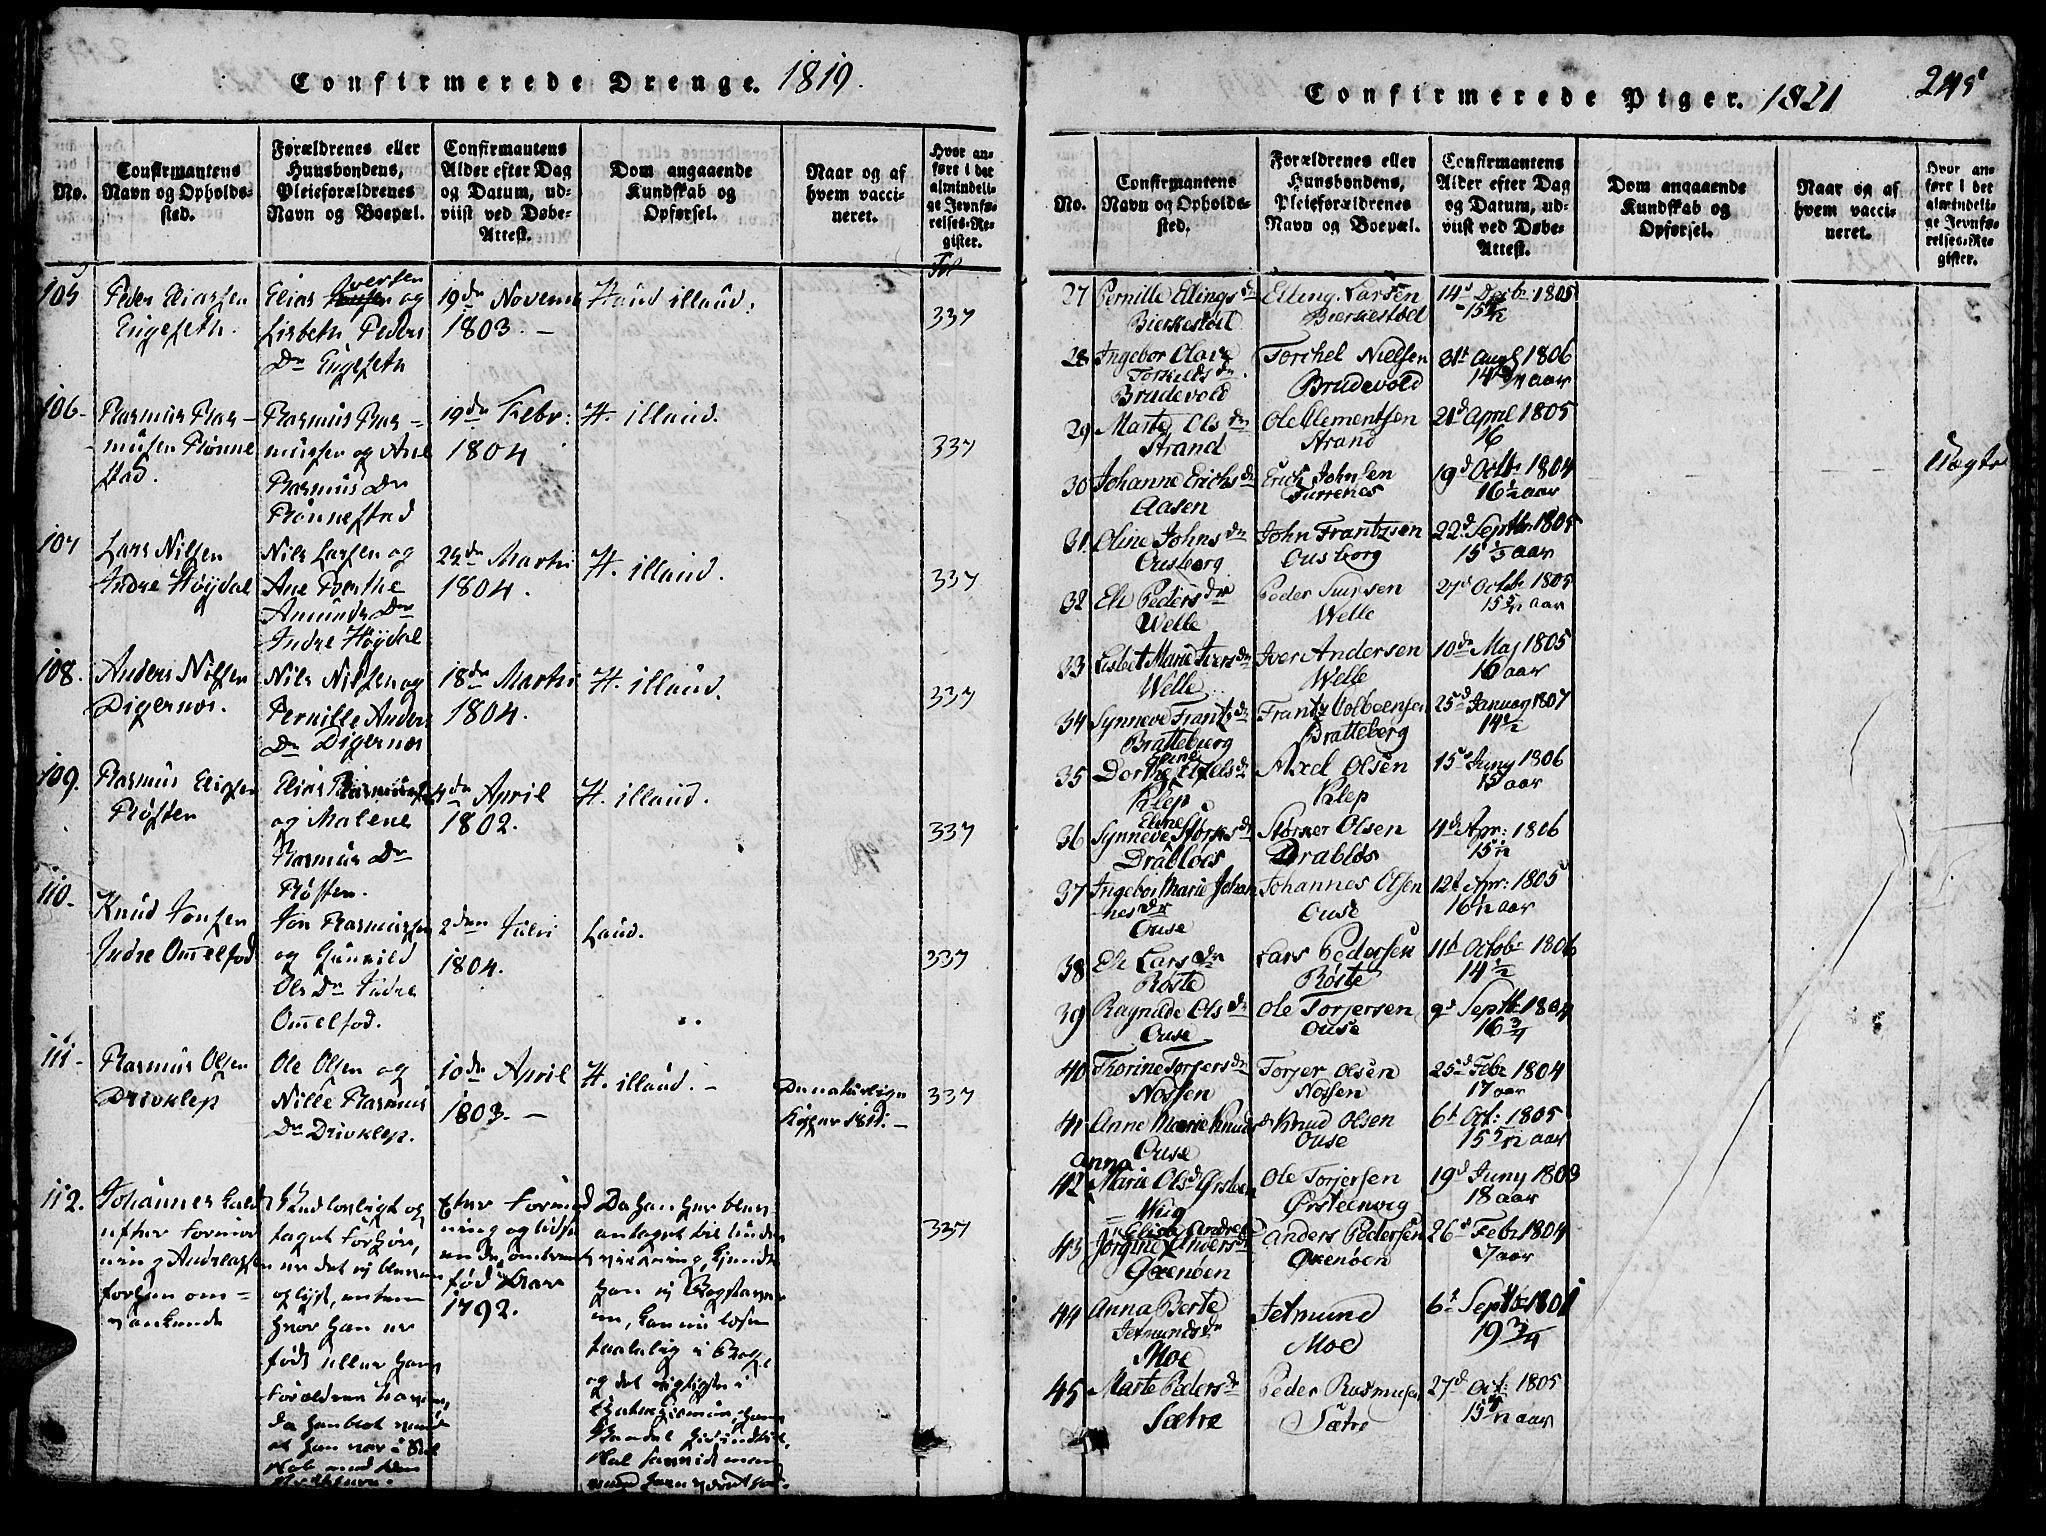 Confirmerede Drenge. 1819.
No.
Confirmantens
Navn og Opholds-
sted.
Forældrenes eller
Huusbondens,
Pleieforældrenes
Navn og Boepæl.
Confirmantens
Alder efter Dag
og Datum, ud-
viist ved Døbe-
Attest.
Dom angaaende
Kundskab og
Opførsel.
Naar og af
hvem vacci-
neret.
Hvor an-
ført i det
almindeli-
ge Jevnfø-
relses-Re-
gister.
Fol
105
Peder Eliassen
Engeseth.
Elias Iversen og
Lisbeth Peders
Dr Engeseth
19de Novemb
1803. –
Haud illaud.
337
106.
Rasmus Ras-
musen Rønne
stad.
Rasmus Ras-
mussen og Ane
Rasmus Dr
Rønnestad
19de Febr:
1804
H. illaud.
337
107
Lars Nilsen
Indre Høydal
Nils Larsen og
Ane Berthe
Amunds Dr
Indre Høydal
Martii
1804.
H. illaud.
337
108.
Anders Nilsen
Digernes.
Nils Nilsen og
Pernille Anders
Dr Digernes
18de Martii
1804.
H. illaud.
337
109.
Rasmus Eliasen
Røsten
Elias
og Malene
Rasmus Dr
Røsten.
April
1802.
H. illaud.
337
110.
Knud Jonsen
Indre Omelfod
Jon Rasmussen
og Gunnild
Ols Dr Indre
Omelfod.
2den Julii
1804.
Laud.
337
111.
Rasmus Olsen
Drivklep
Ole Olsen og
Nille Rasmus
Dr Drivklep.
10de April
1803. –
H. illaud. –
De naturlige
Kopper 1811. –
337
112.
Johannes
efter Formod
ning Andreassen
forhen om-
vankende
taget Forhør,
er det ej bleven
oplyst, enten
hvor han er
født eller hans
Forældre
da han blot
at han var i
med den
Efter Formod
ning og
ende omtrent
født
1792.
Da han har blev
antaget til Under
viisning, kjendte
han ej Bogstaver
ne, kan nu læse
taalelig i Bog
og det vigtigste i
337
Confirmerede Piger. 1821
245
No.
Confirmantens
Navn og Opholds-
sted.
Forældrenes eller
Huusbondens,
Pleieforældrenes
Navn og Boepæl.
Confirmantens
Alder efter Dag
og Datum, ud-
viist ved Døbe-
Attest.
Dom angaaende
Kundskab og
Opførsel.
Naar og af
hvem vacci-
neret.
Hvor an-
ført i det
almindeli-
ge Jevnfø-
relses-Re-
gister.
27
Pernille Ellings dr
Bierkestøl
Elling Larsen
Bierkestøel
14d Decbr 1805
28
Ingebor Clara
Torkelds dr
Brudevold
Torchel Nielsen
Brudevold
31t Augl 1806
29
Marte Ols dr
Strand
Ole Clementsen
Strand
21d April 1805
16
30
Johanne Erichs dr
Aasen
Erich Johnsen
Furrenes
19d Octbr 1804
16½ aar
31
Oline Johns dr
Ousborg
John Frantzsen
Ousborg
22d Septbr 1805
15⅓ aar
32
Eli Peders dr
Welle
Peder Siursen
Welle
27d Octbr 1805
15 5/12 aar
33
Lisbet Marie Ivers dr
Welle
Iver Andersen
Welle
10de Maj 1805
16 aar
34
Synneve Frantz dr
Bratteburg
Frantz Colbeensen
Bratteberg
25d Januar 1807
14½
35
Dorthe Axels dr
Klep
Axel Olsen
Klep
15d Juny 1806
15 aar
36
Eline
Synneve Størks dr
Drabløes
Størker Olsen
Drabløs
Apr: 1806
15 1/12
37
Ingebor Marie Johan
nes dr
Ouse
Johannes Olsen
Ouse
12t Apr: 1805
16 1/12 aar
38
Eli Lars dr
Røste
Lars Pedersen
Røste
11d Octobr 1806
14½
39
Ragnilde Ols dr
Ouse
Ole Torjersen
Ouse
9d Septbr 1804
16¾
40
Thorine Torjers dr
Nossen
Torjer Olsen
Nossen
25d Febr 1804
17 aar
41
Anne Marie Knuds d
Ouse
Knud Olsen
Ouse
6t Oct: 1805
15 5/12 aar
42
Anna
Marie Ols d Ørsteen
Wiig
Ole Torjersen
Ørsteenvig
19d Juny 1803
18 aar
43
Jørgine Anders dr
Oxenøen
Anders Pedersen
Oxenøen
26d Febr 1804
7 aar
44
Anna Berte
Jetmunds dr
Moe
Jetmund
Moe
6t Septbr 1801
19¾
45
Marte Peders dr
Sætre
Peder Rasmusen
Sætre
27d Oct: 1805
15 5/12 aar